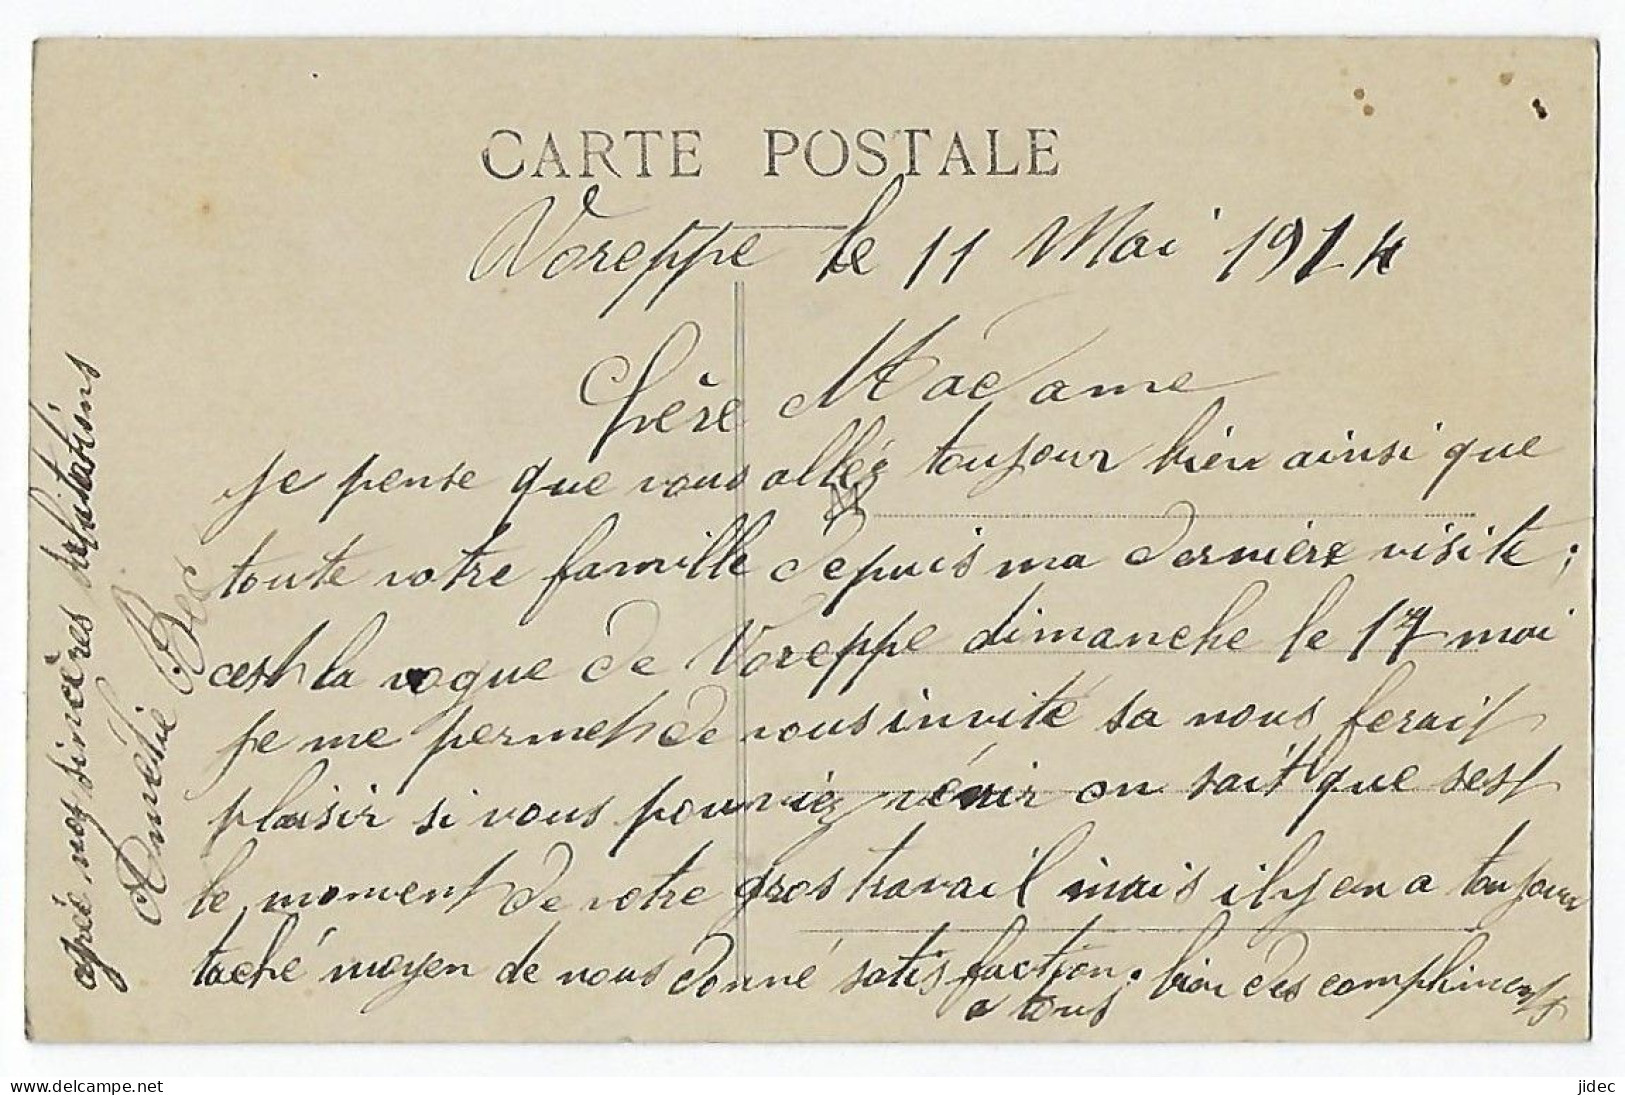 CARTE POSTALE
Voreppe le 11 Mai 1914
Chère Madame
M
je pense que vous alléz toujour bien ainsi que
toute votre famille depuis ma dernière visite ;
cest la vogue de Voreppe dimanche le 17 mai
je me permet de vous invité sa nous ferait
plaisir si vous pouvriez vénir on sait que sest
le moment de votre gros travail mais il y en a toujour
taché moyen de nous donné satisfaction . bien des compliments
a tous
agréé nos sincères salutations
Amélie Bec
jidec